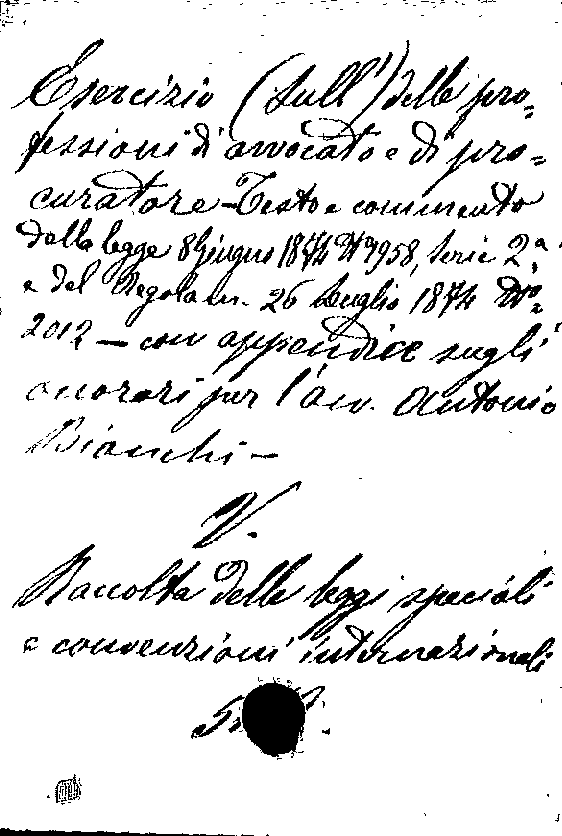 Esercizio (Sull') delle pro=
fessioni di avvocato e di pro=
curatore - Testo e commento
della legge 8 Giugno 1874 N° 1958, Serie 2ª
e del Regolam. 26 Luglio 1874 N°
2012 - con appendice sugli
onorari per l'avv. Antonio
Bianchi -
V.
Raccolta delle leggi speciali
e convenzioni internazionali